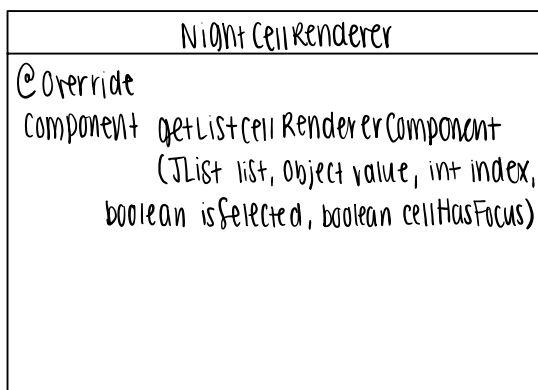 NightCellRenderer
@Override
Component getListCellRendererComponent
(JList list, Object value, int index,
boolean isSelected, boolean cellHasFocus)